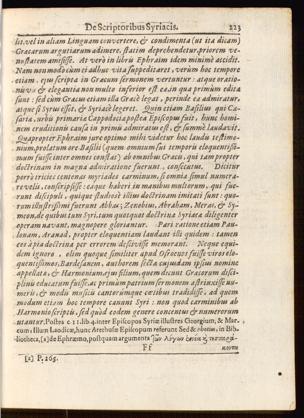 De Scriptoribus Syriacis. 223
lit. vel in aliam Linguam convertere, & condimenta (ut ita dicam)
Græcarum argutiarum adimere, statim deprehendetur, priorem ve-
nustatem amisisse. At verò in libris Ephraim idem minimè accidit.
Nam non modò cum ei adhuc vita suppeditaret, verùm hoc tempore
etiam, ejus scripta in Græcum sermonem vertuntur: atque oratio-
nis vis & elegantia non multo inferior est ea, in qua primùm edita
sunt: sed cùm Græcus etiam illa Græcè legat, perinde ea admiratur,
atque si Syrus esset, & Syriacè legeret. Quin etiam Basilius qui Cæ-
sariæ, urbis primariæ Cappodociæ, postea Episcopus fuit, hunc homi-
nem eruditionis causa in primis admiratus est, & summè laudavit.
Quapropter Ephraim jure optimo mihi videtur hoc laudis testimo-
nium, prolatum ore Basilii (quem omnium sui temporis eloquentissi-
mum fuisse inter omnes constat) ab omnibus Græcis, qui tam propter
doctrinam in magna admiratione fuerunt, consecutus. Dicitur
porrò tricies centenas myriades carminum, si omnia simul numera-
revelis, conscripsisse: eaque haberi in manibus multorum, qui fue-
runt discipuli, quique studiosè illius doctrinam imitati sunt: quo-
rum illustrissimi fuerunt Abbas, Zenobius, Abraham, Meras, & Sy-
meon, de quibus tum Syri, tum quotquot doctrinæ Syriacæ diligenter
operam navant, magnopere gloriantur. Pari ratione etiam Pau-
lonam, Aranad, propter eloquentiam laudant illi quidem: tamen
eos à pia doctrina per errorem descivisse memorant. Neque equi-
dem ignoro, olim quoque similiter apud Osroënos fuisse viros elo-
quentissimos, Bardesanem, authorem sectæ cujusdam ipsius nomine
appellatæ, & Harmonium, ejus filium, quem dicunt Græcorum disci-
plinis educatum fuisse, ac primum patrium sermonem astrinxisse nu-
meris, & modis musicis cantorumque cœtibus tradidisse, ad quem
modum etiam hoc tempore canunt Syri: non quod carminibus ab
Harmonio scriptis, sed quòd eodem genere concentus & numerorum
utantur. Postea c. 21. lib. 4. inter Episcopos Syriæ illustres Georgium, & Mar-
cum illum Laodicæ, hunc Arethusæ Episcopum referunt Sed & obenius, in Bib-
liotheca, [a] de Ephræmo, postquam argumenta
Ff
[a] P. 265.